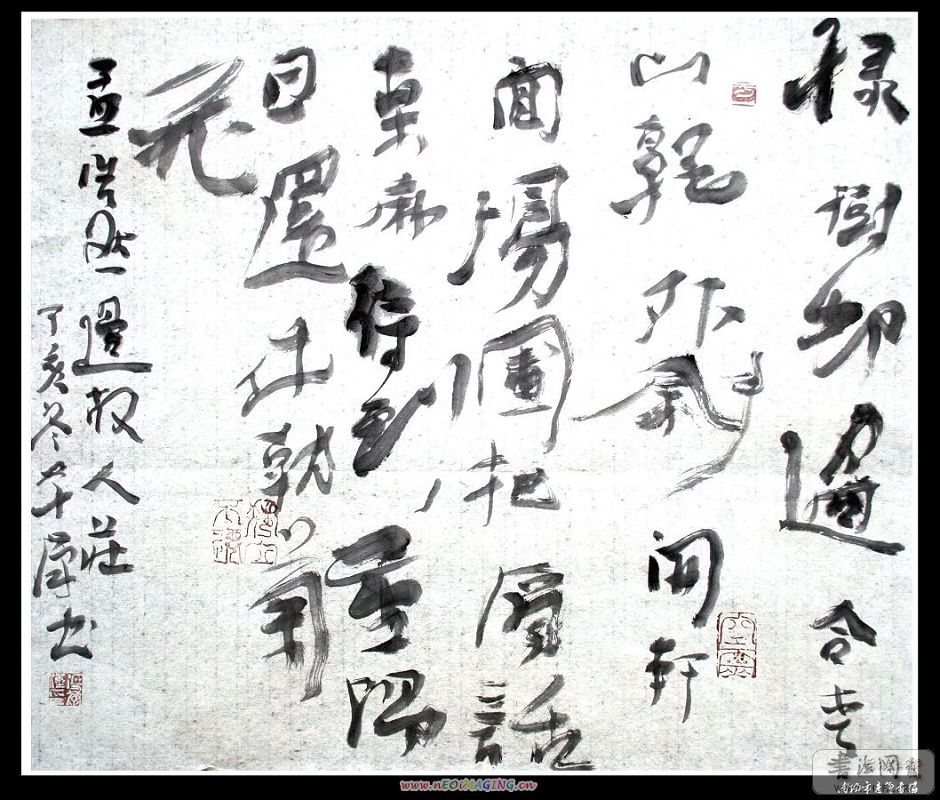 綠樹邨邊合青
山郭外斜開軒
面場圃把酒話
桑麻待到重陽
日還來就菊
花
孟浩然過故人莊
丁亥冬書
www.nEOiMAGiNG.cn